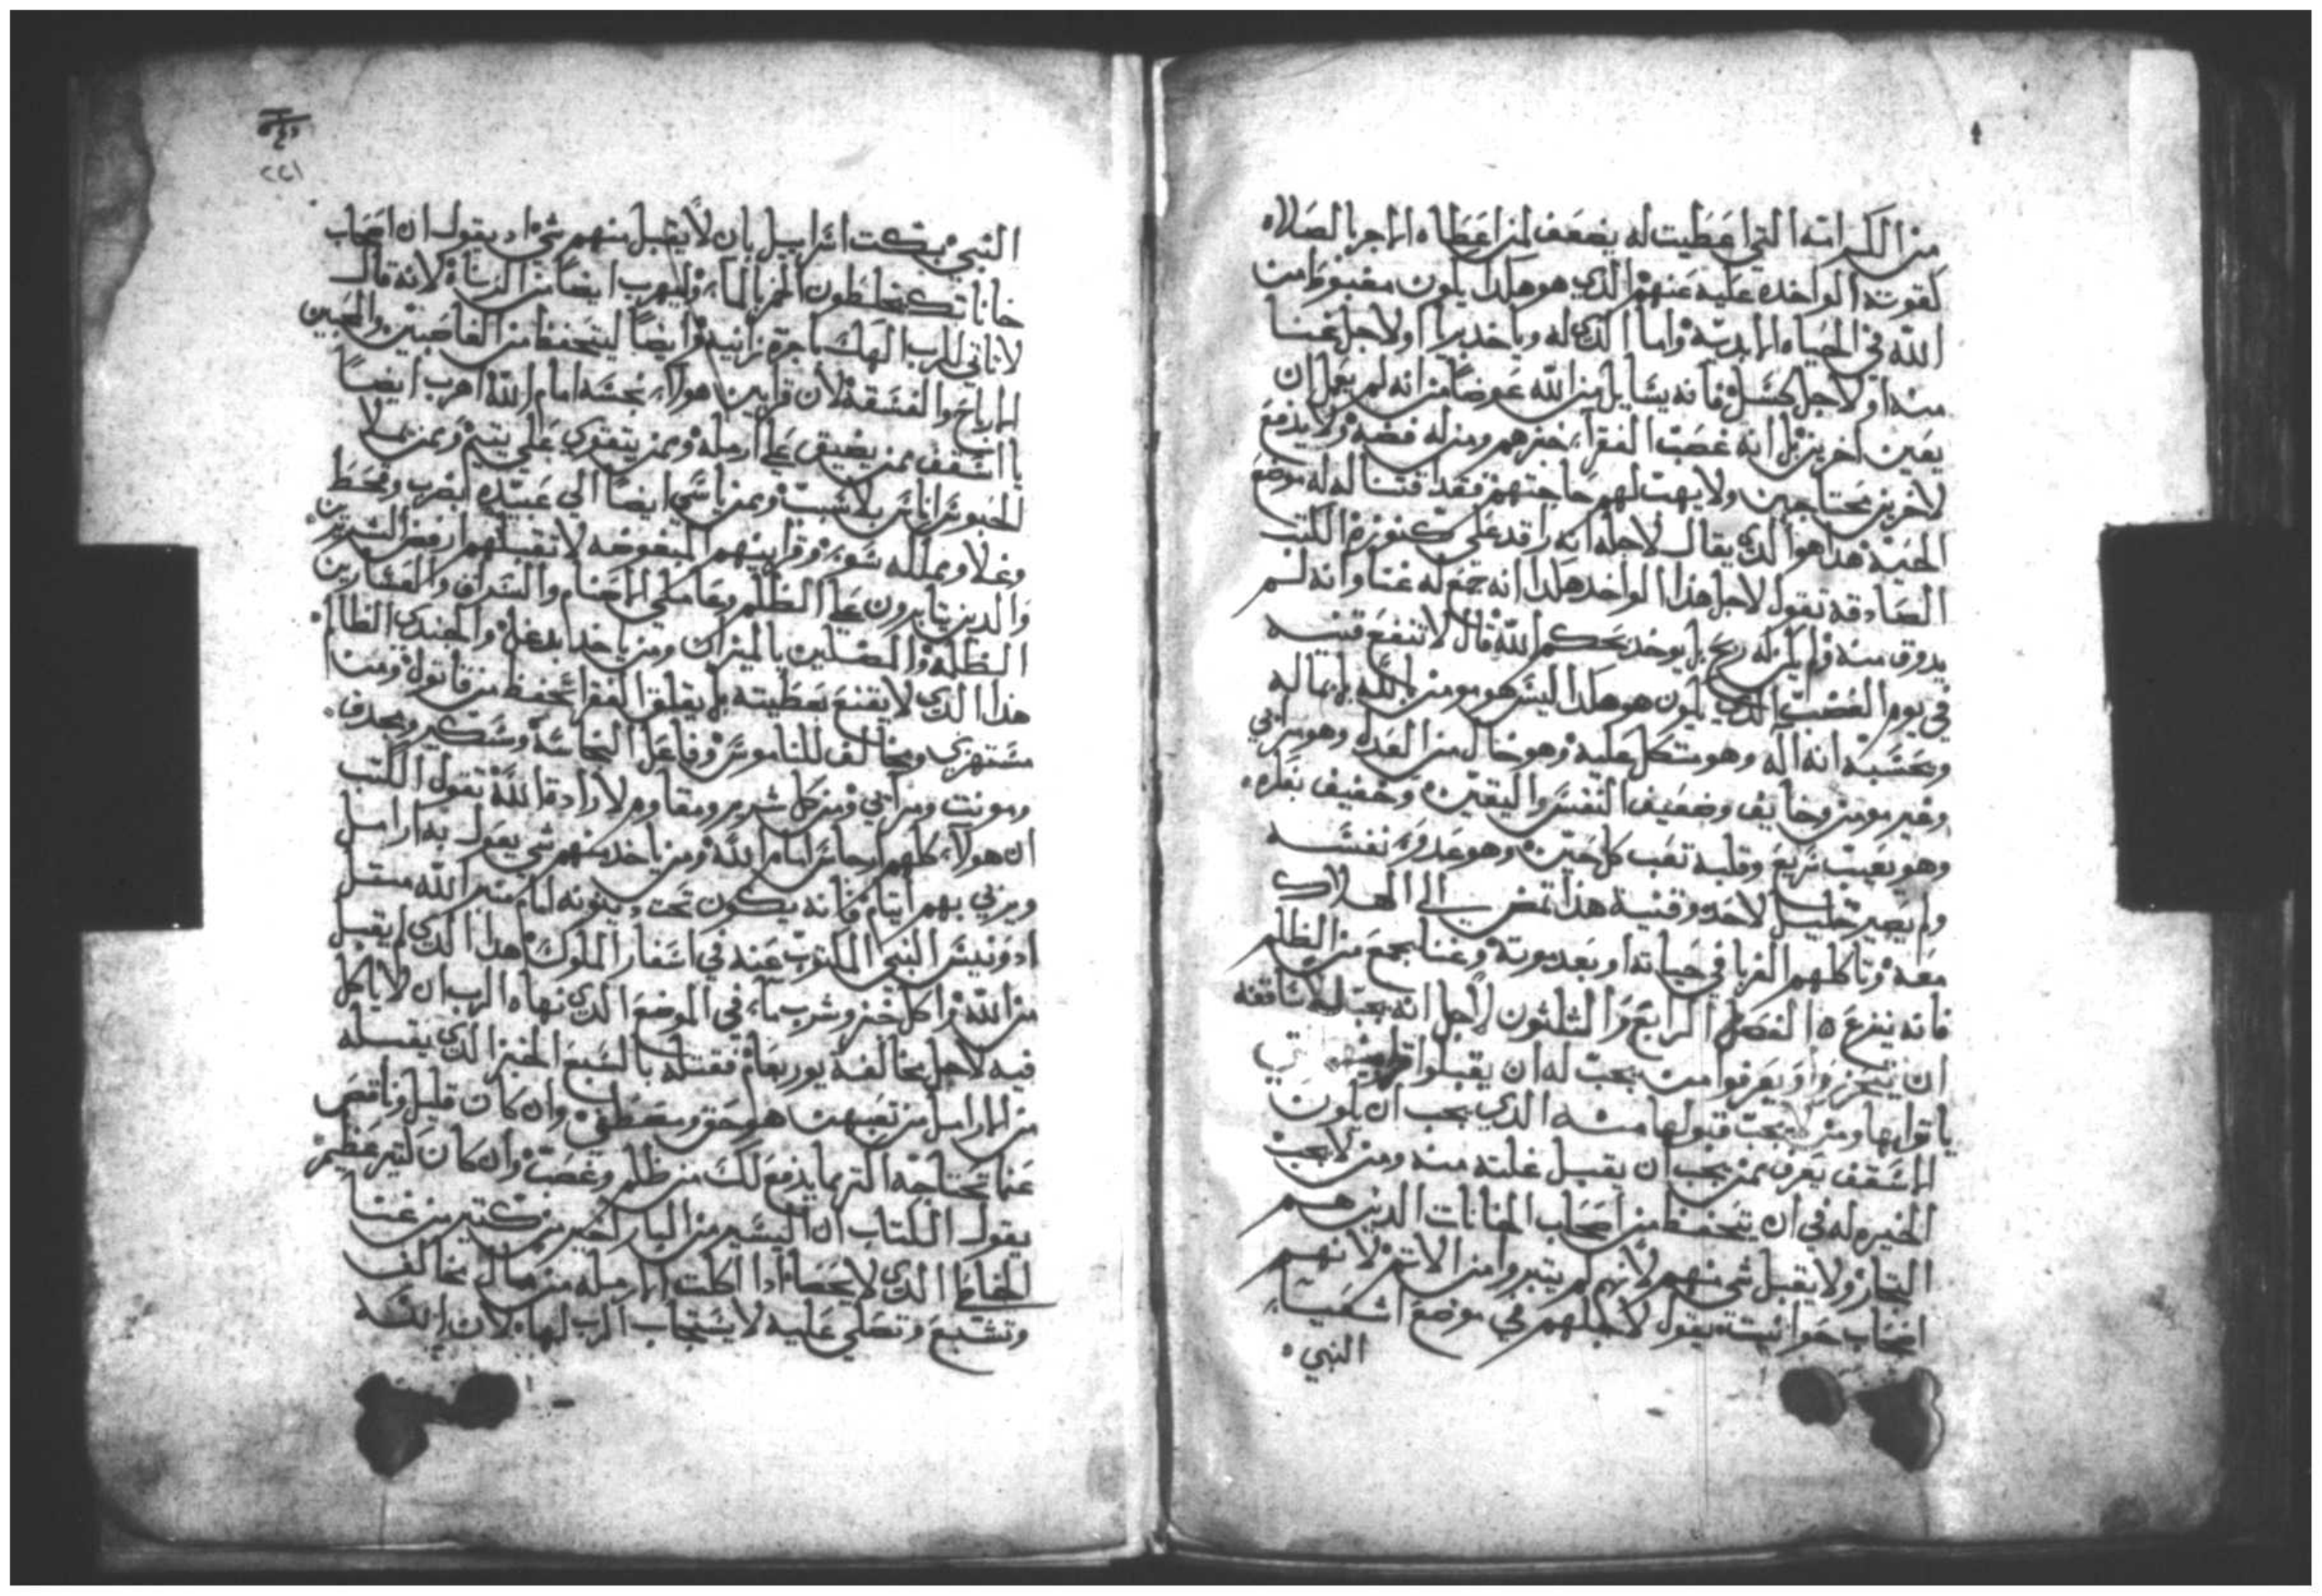 من الكرامة التي اعطيت له يضعف لمن اعطاه الاجر بالصلاه
لقوته الواحده عليه عنهم الذي هو هكذا يكون مغبوط من
الله في الحياه الابديه واما الذي له وياخذ برا او لاجل غنا
منه او لاجل كسل فانه يسايل من الله عوضا من انه لم يعمل ان
يعين اخرين بل انه غصب الفقراء خبزهم ومن له فضه ولا يدفع
لاخرين محتاجين ولا يهب لهم حاجتهم فقد اقتنا له له موضع
الحيه هذا هو الذي يقال لاجله انه راقد على كنوزه الكتب
الصادقه تقول لاجل هذا الواحد هكذا انه جمع له غنا وانه لم
يدوق منه ولم يكن له ربح بل يوخد بحكم الله قال لا تنفع قنيه
في يوم الغضب الذي يكون هو هكذا ليس هو مومن بالله بل بماله
ويحسبه انه اله وهو متكل عليه وهو خال من العدل وهو مرائي
وغير مومن وخايف وضعيف النفس واليقين وخفيف نظره
وهو يغيب سريع وقلبه تعب كل حين وهو عدو نفسه
ولم يصير خليل لاحد وقنية هذا تمضي الي الهلاك
معه وتاكلهم الغربا في حياته او بعد موته وغنا يجمع من الظلم
فانه ينفرع ه الفصل الرابع والثلثون لاجل انه يجب للاساقفه
ان يتحرزوا ويعرفوا من يجب له ان يقبلوا
ياتوا بها ومن يجب قبولها منه الذي يجب ان يكون
الاسقف يعرف ممن يجب ان يقبل غلته منه ومن لا يجب
الخيره له في ان يتحفظ من اصحاب الخانات الذين هم
التجار ولا يقبل شي منهم لانهم لم يتبروا من الاتم لانهم
اصحاب حوانيت يقول لاجلهم في موضع اشعيا
النبي
٢٢١
النبي يبكت اسراييل بان لا يقبل منهم شي اد يقول ان اصحاب
خاناتك يخلطون الخمر بالماء وليهرب ايضا من الزناة لانه قال
لا تاتي للرب الهك باجرة زانيه وايضا ليتحفظ من الغاصبين والمحبين
الارباح والفسقه لان قرابين هولاء نجسه امام الله اهرب ايضا
يا اسقف ممن يضيق على ارمله وممن يتقوي على يتيم وممن يملا
الحبوس اناس بلا سبب وممن ياسي ايضا الي عبيده بضرب وقحط
وغلا ومملكه سوء وقرابينهم المبغوضه لا تقبلهم ارفض الشريرين
والدين يتابرون على الظلم وعاملي الاصنام والسراق والعشارين
الظلمه والمضلين بالميزان ومن ياخد بدغل والجندي الظالم
هذا الذي لا يقنع بعطيته بل يقلق الفقرا تحفظ من قاتول ومن
مستهزي ومخالف للناموس وفاعل النجاسة وسكير ومجدف
ومونت ومرائي ومن كل شرير ومقاوم لارادة الله تقول الكتب
ان هولاء كلهم ارجاس امام الله ومن ياخد منهم شي يعول به ارامل
ويربي بهم ايتام فانه يكون تحت دينونه امام منبر الله متل
ادونيس النبي المكتوب عنه في اسفار الملوك هذا الذي لم يقبل
من الله واكل خبز وشرب ماء في الموضع الذي نهاه الرب ان لا ياكل
فيه لاجل مخالفة يوربعام فقتله بالسبع الخبز الذي يقبله
من الارامل من تعبهن هو حق ومعطي وان كان قليل وناقص
عما تحتاجه اكتر مما يدفع لك من ظلم وغصب وان كان كتير عظيم
يقول الكتاب ان اليسير من البار لخير من كتير من غنا
الخطاة الذي لا يحصا اذا اكلت الارمله من مال مخالف
وتشبع وتصلي عليه لا يستجاب الرب لها لان الله